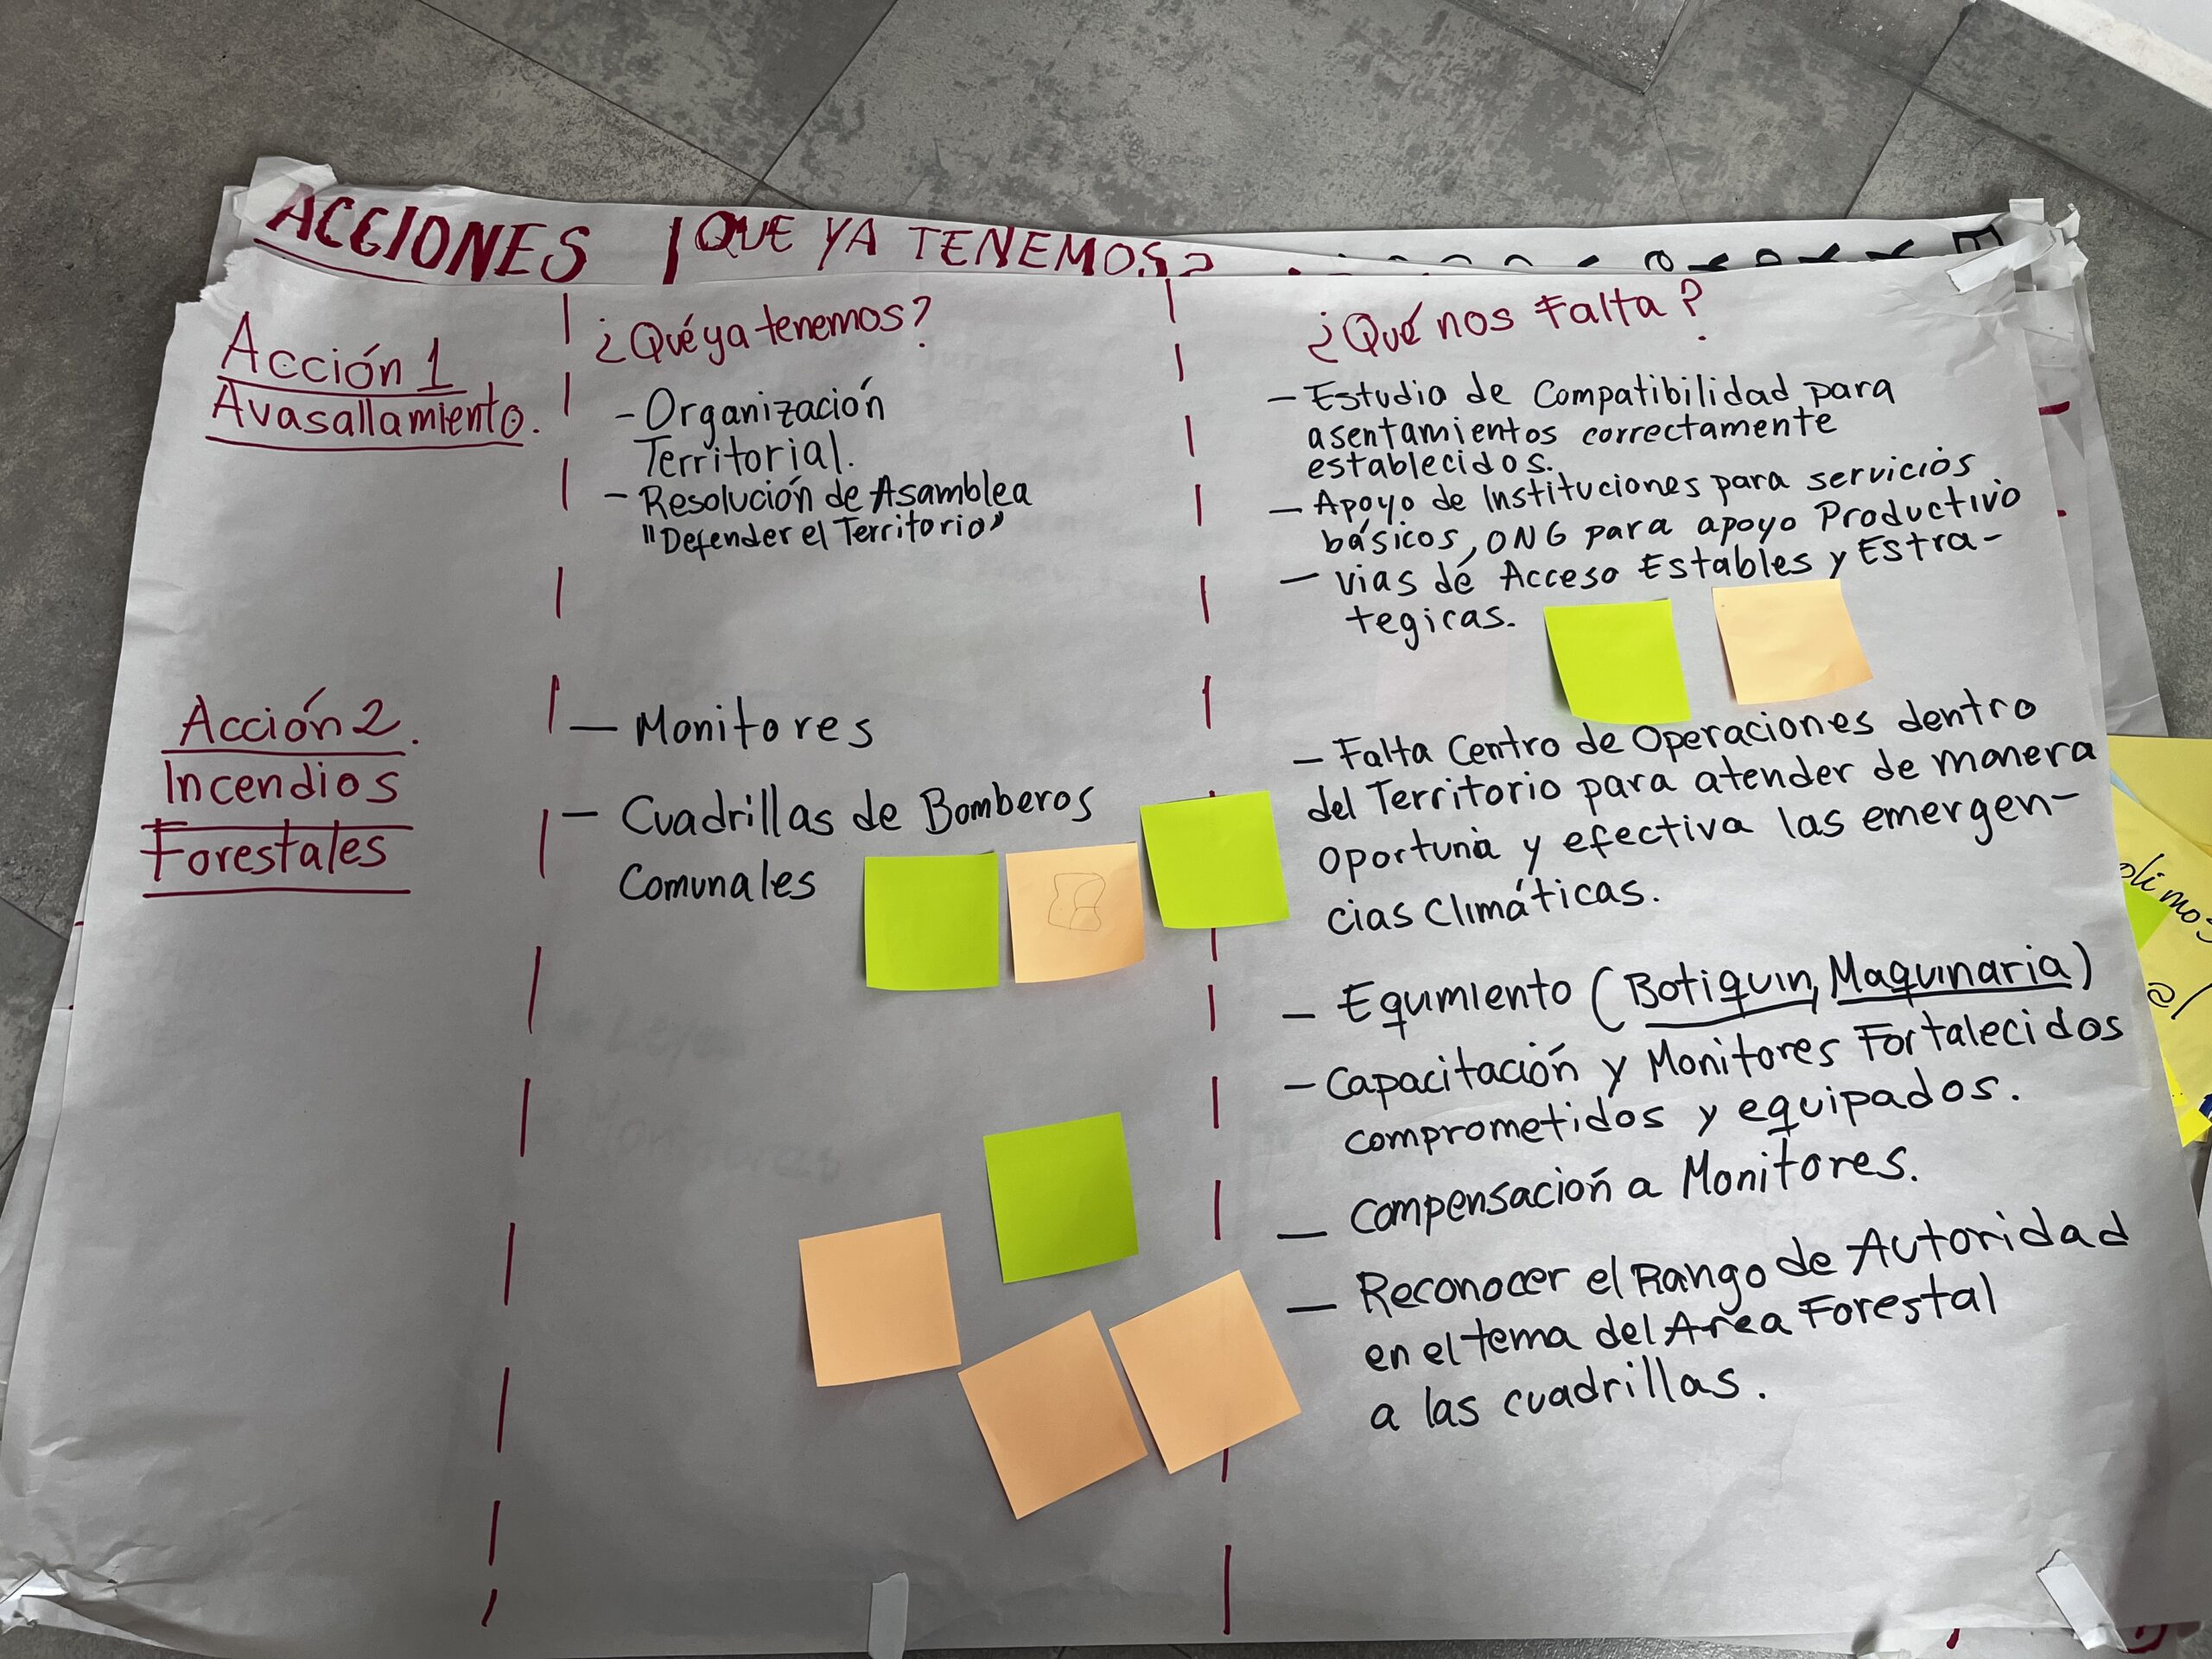 ACCIONES | QUE YA TENEMOS?
Acción 1
Avasallamiento.
¿Qué ya tenemos?
- Organización
Territorial.
- Resolución de Asamblea
"Defender el Territorio"
¿Qué nos Falta?
- Estudio de Compatibilidad para
asentamientos correctamente
establecidos.
- Apoyo de Instituciones para servicios
básicos, ONG para apoyo Productivo
- vias de Acceso Estables y Estra-
tegicas.
Acción 2.
Incendios
Forestales
- Monitores
- Cuadrillas de Bomberos
Comunales
- Falta Centro de Operaciones dentro
del Territorio para atender de manera
oportuna y efectiva las emergen-
cias Climáticas.
- Equmiento (Botiquin, Maquinaria)
- Capacitación y Monitores Fortalecidos
comprometidos y equipados.
- Compensación a Monitores.
- Reconocer el Rango de Autoridad
en el tema del Area Forestal
a las cuadrillas.